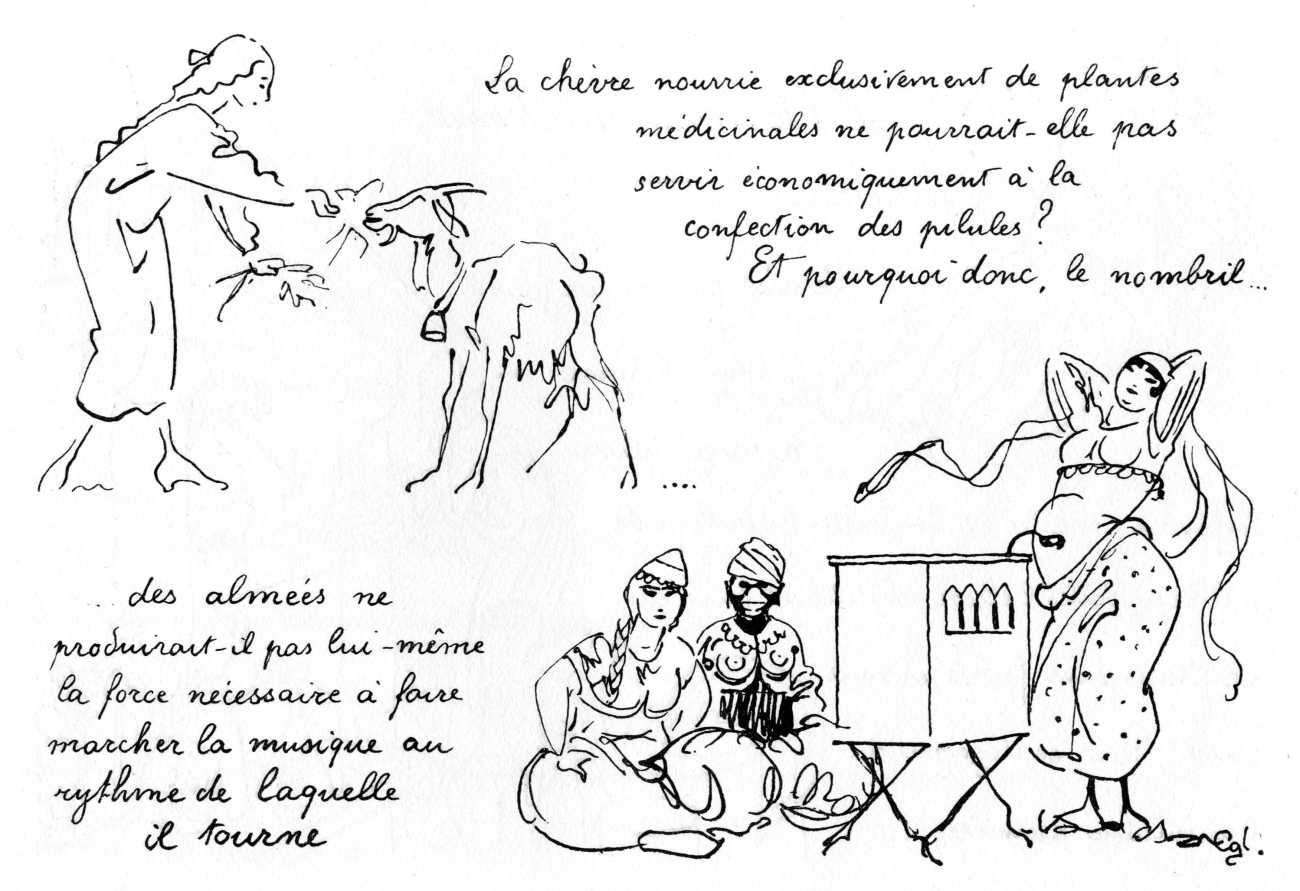 La chèvre nourrie exclusivement de plantes
médicinales ne pourrait-elle pas
servir économiquement à la
confection des pilules?
Et pourquoi donc, le nombril...
....
... des almées ne
produirait-il pas lui-même
la force nécessaire à faire
marcher la musique au
rythme de laquelle
il tourne
Egl.